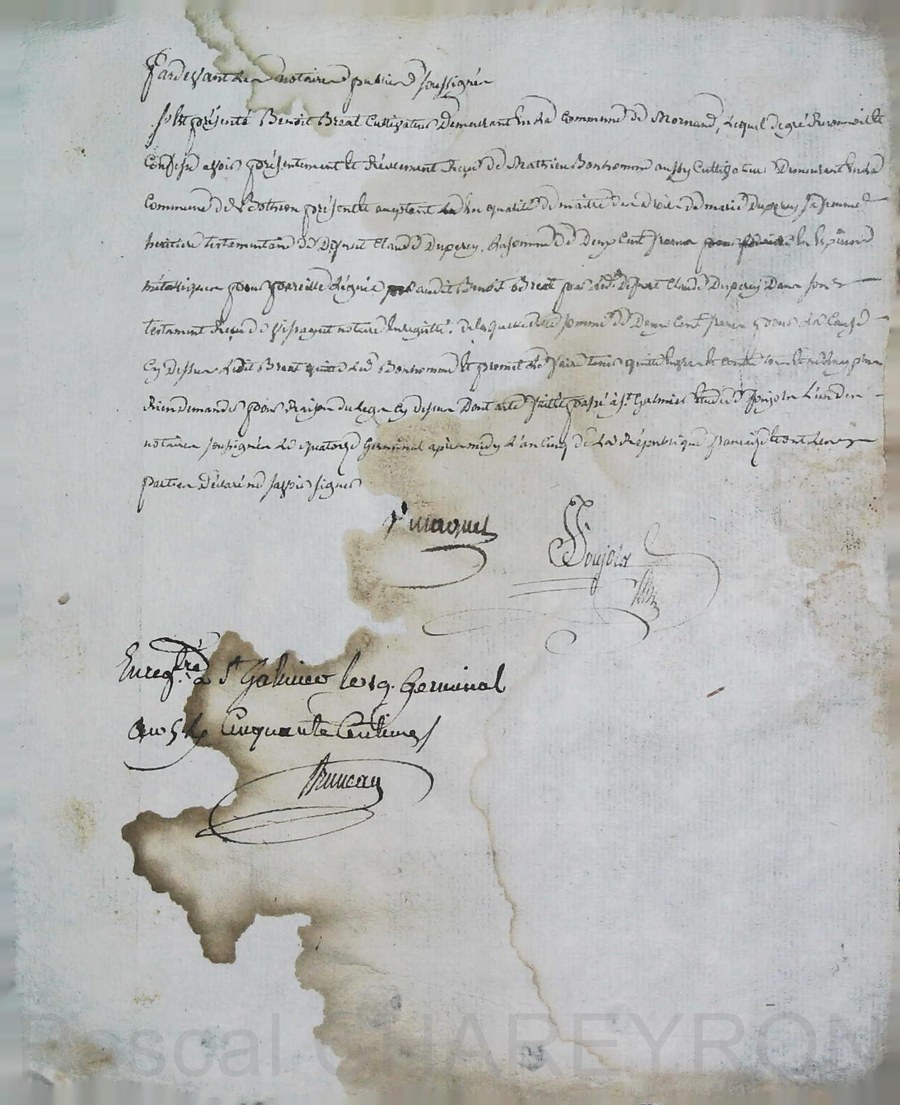 Pardevant les notaires publics soussignés
s'est présenté Benoit Breat Cultivateur Demeurant En la Commune de Mornand, Lequel de gré Reconnoit et
Confesse avoir présentement et Réelement Reçu de Mathieu Bonhomme aussy Cultivateur Demeurant En la
Commune de présent et acceptant En qualité de maitre des droits de marie Duperey sa femme
heritiere testamentaire de Defunt Claude Duperey, La somme de Deux Cent francs En Espèces
métalliques pour pareille Léguée audit Benoit Breat par Defunt Claude Duperey Dans son
testament Reçu notaire Enregistré, De laquelle somme de Deux Cent francs pour La Cause
Cy Dessus Ledit Breat quitte Led. Bonhomme Et promet Le faire tenir quitte Envers Et contre tous
Rien demander pour Raison du Legs Cy dessus Dont acte fait et passé à St. Galmier Etude de Poujola L'un des
notaires soussignés Le quatorze Germinal après midy L'an Cinq de La République française Et ont Les
parties Déclaré ne savoir signer
Poujola
Enreg.tré à St Galmier le 19. Germinal
an 5 Cinquante Centimes
Pascal CHAREYRON